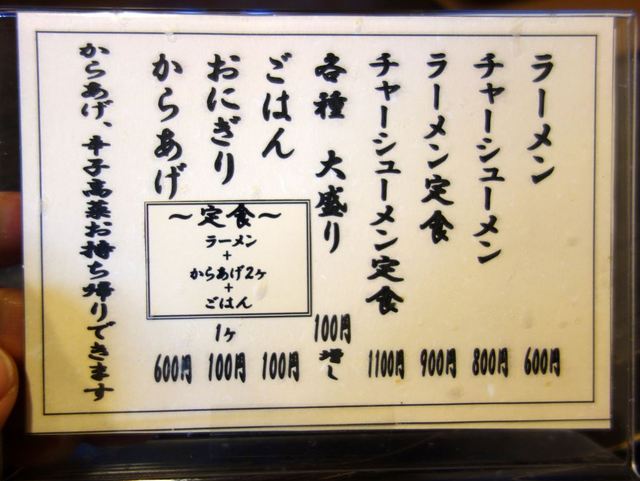 ラーメン 600円
チャーシューメン 800円
ラーメン定食 900円
チャーシューメン定食 1100円
各種 大盛り 100円増し
ごはん 100円
おにぎり 1ヶ 100円
からあげ 600円
～定食～
ラーメン
+
からあげ2ヶ
+
ごはん
からあげ、辛子高菜お持ち帰りできます